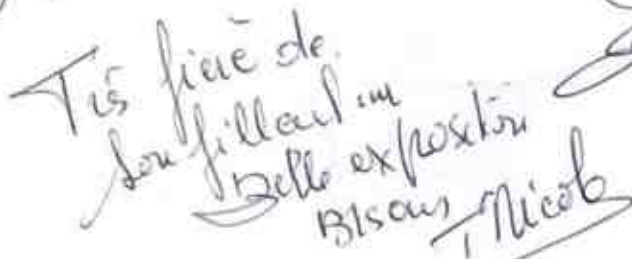 Très fière de
son filleul !!!
Belle exposition
Bisous
T Nicole